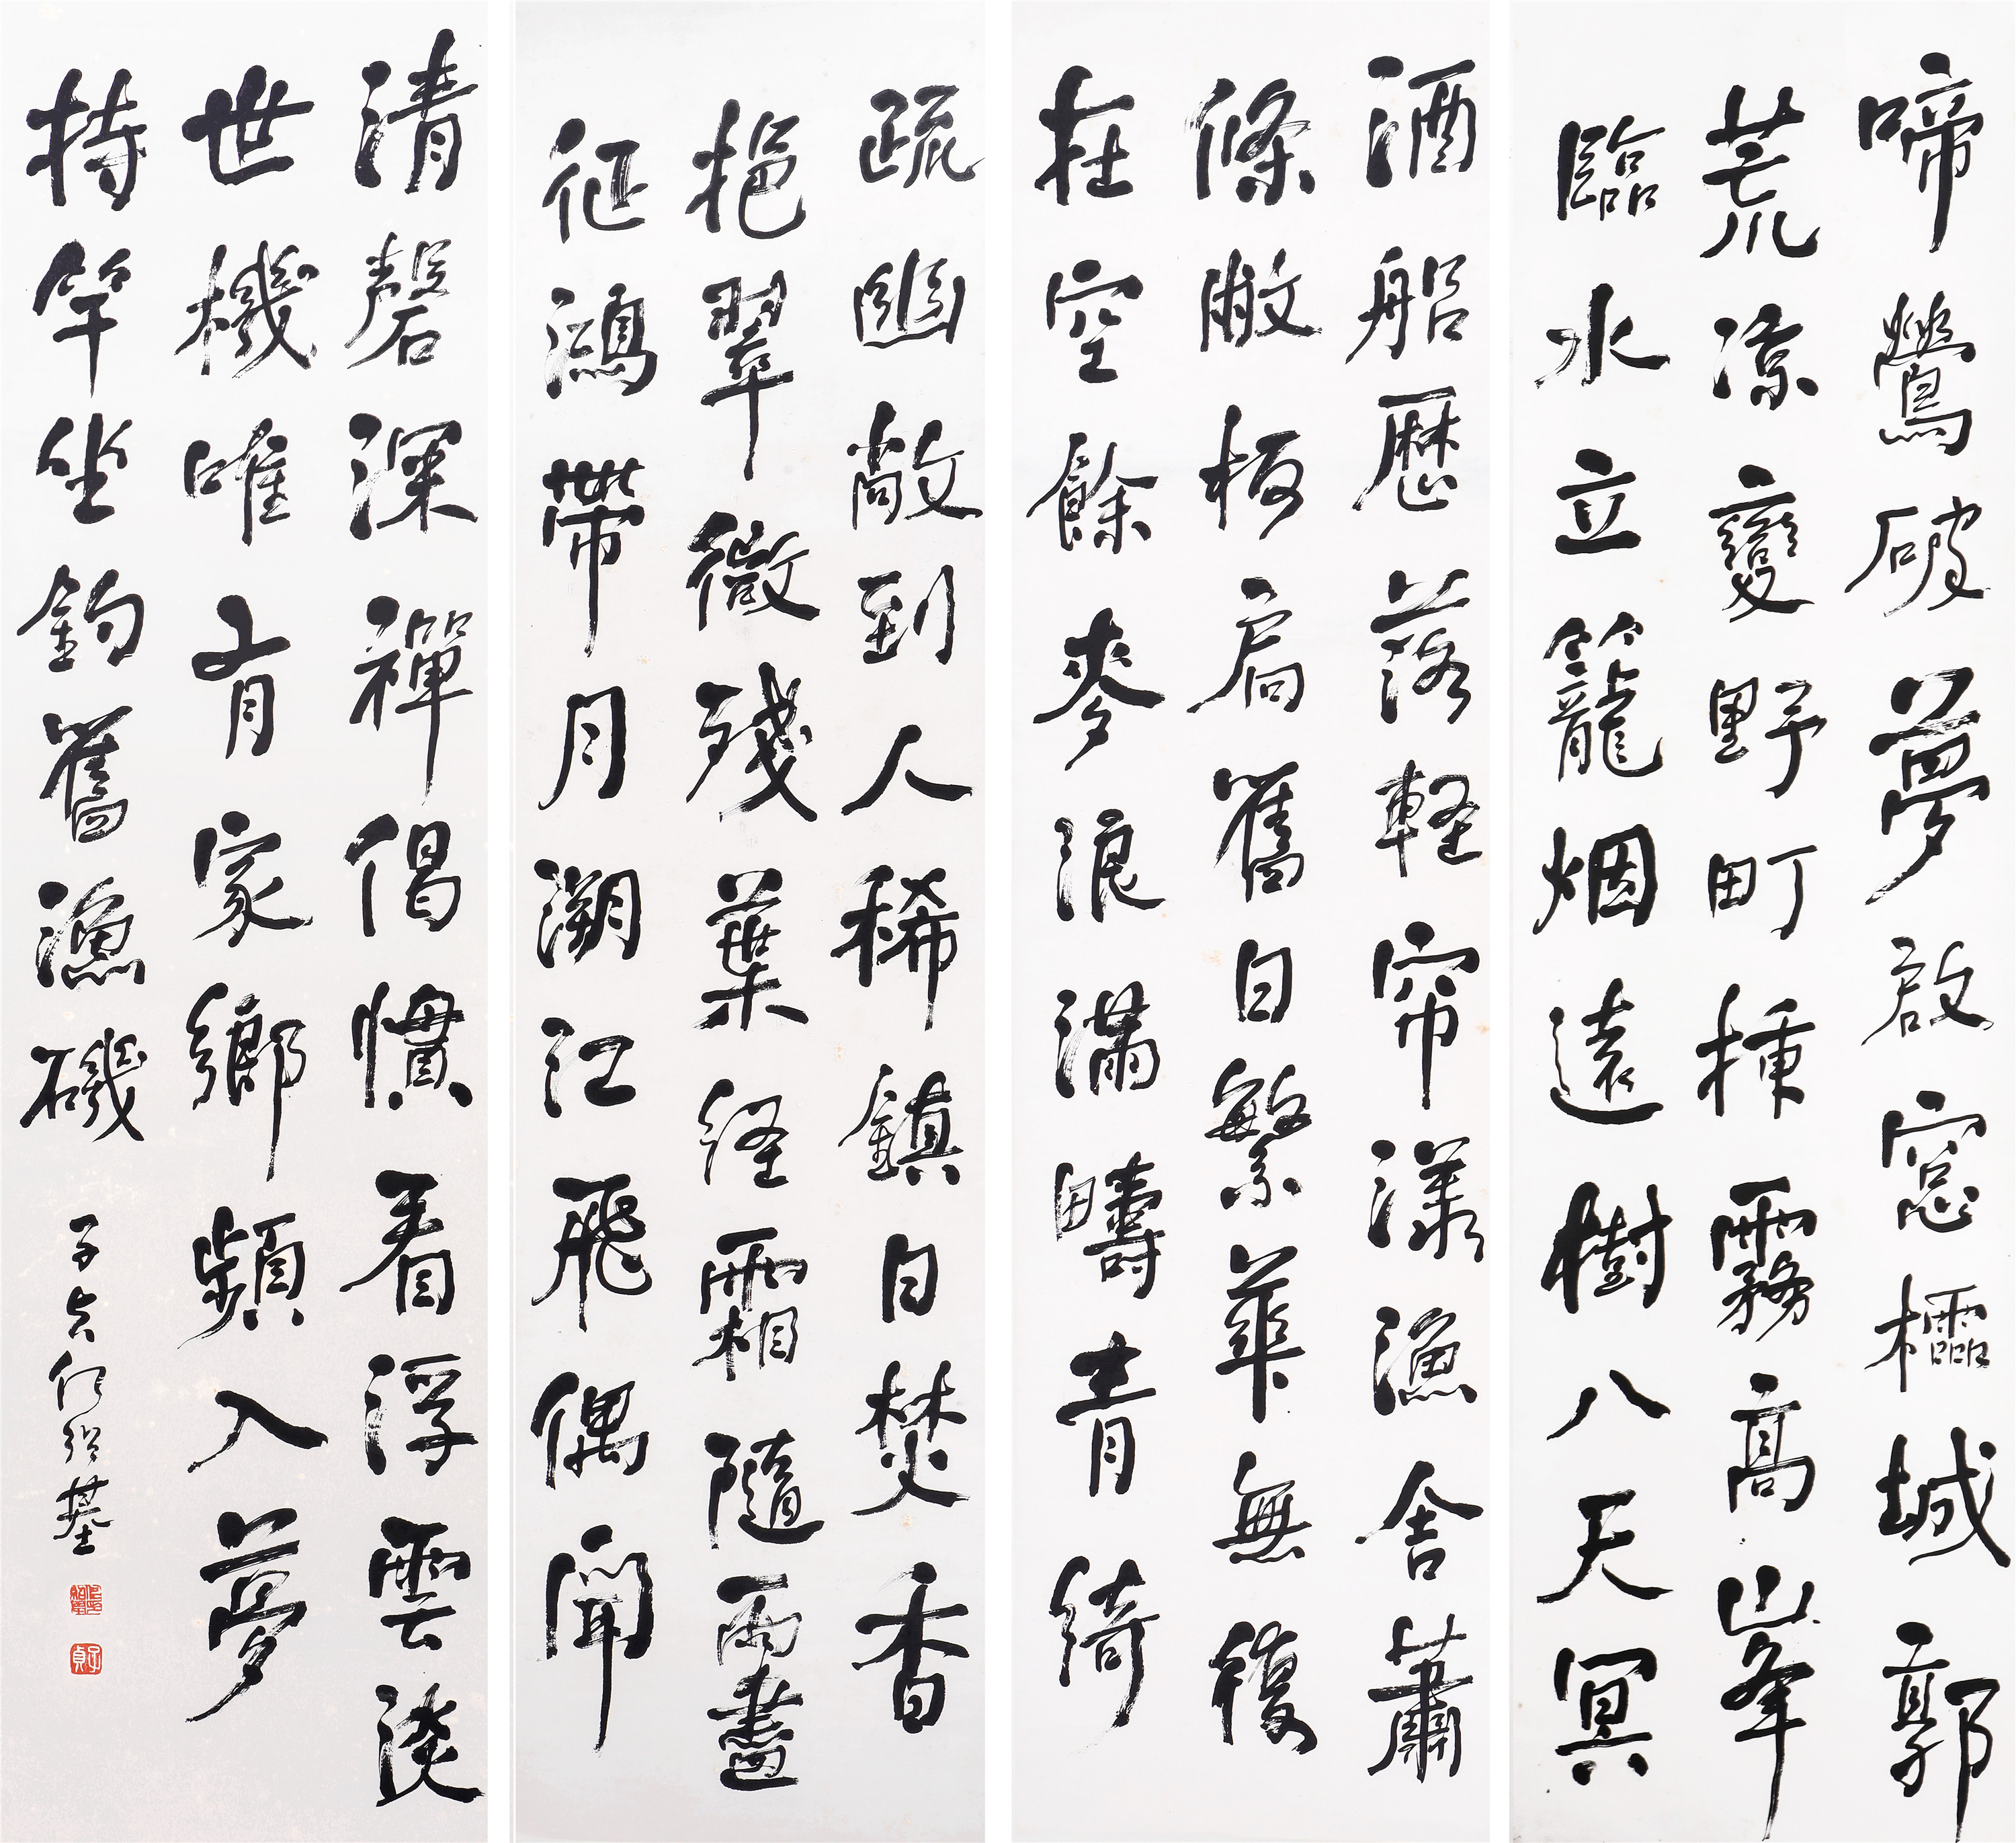 啼鶯破夢啟窓櫺城郭
荒凉變野町揷霧高峯
臨水立籠烟遠樹入天冥
酒船歷落輕帘漾漁舍蕭
條敝板扃舊日繁華無復
在空餘麥浪滿疇青綺
疏幽敞到人稀鎮日焚香
挹翠微殘葉經霜隨雨盡
征鴻帶月溯江飛偶聞
清磬深禪偈慣看浮雲淡
世機唯有家鄉頻入夢
持竿坐釣舊漁磯
子貞何紹基